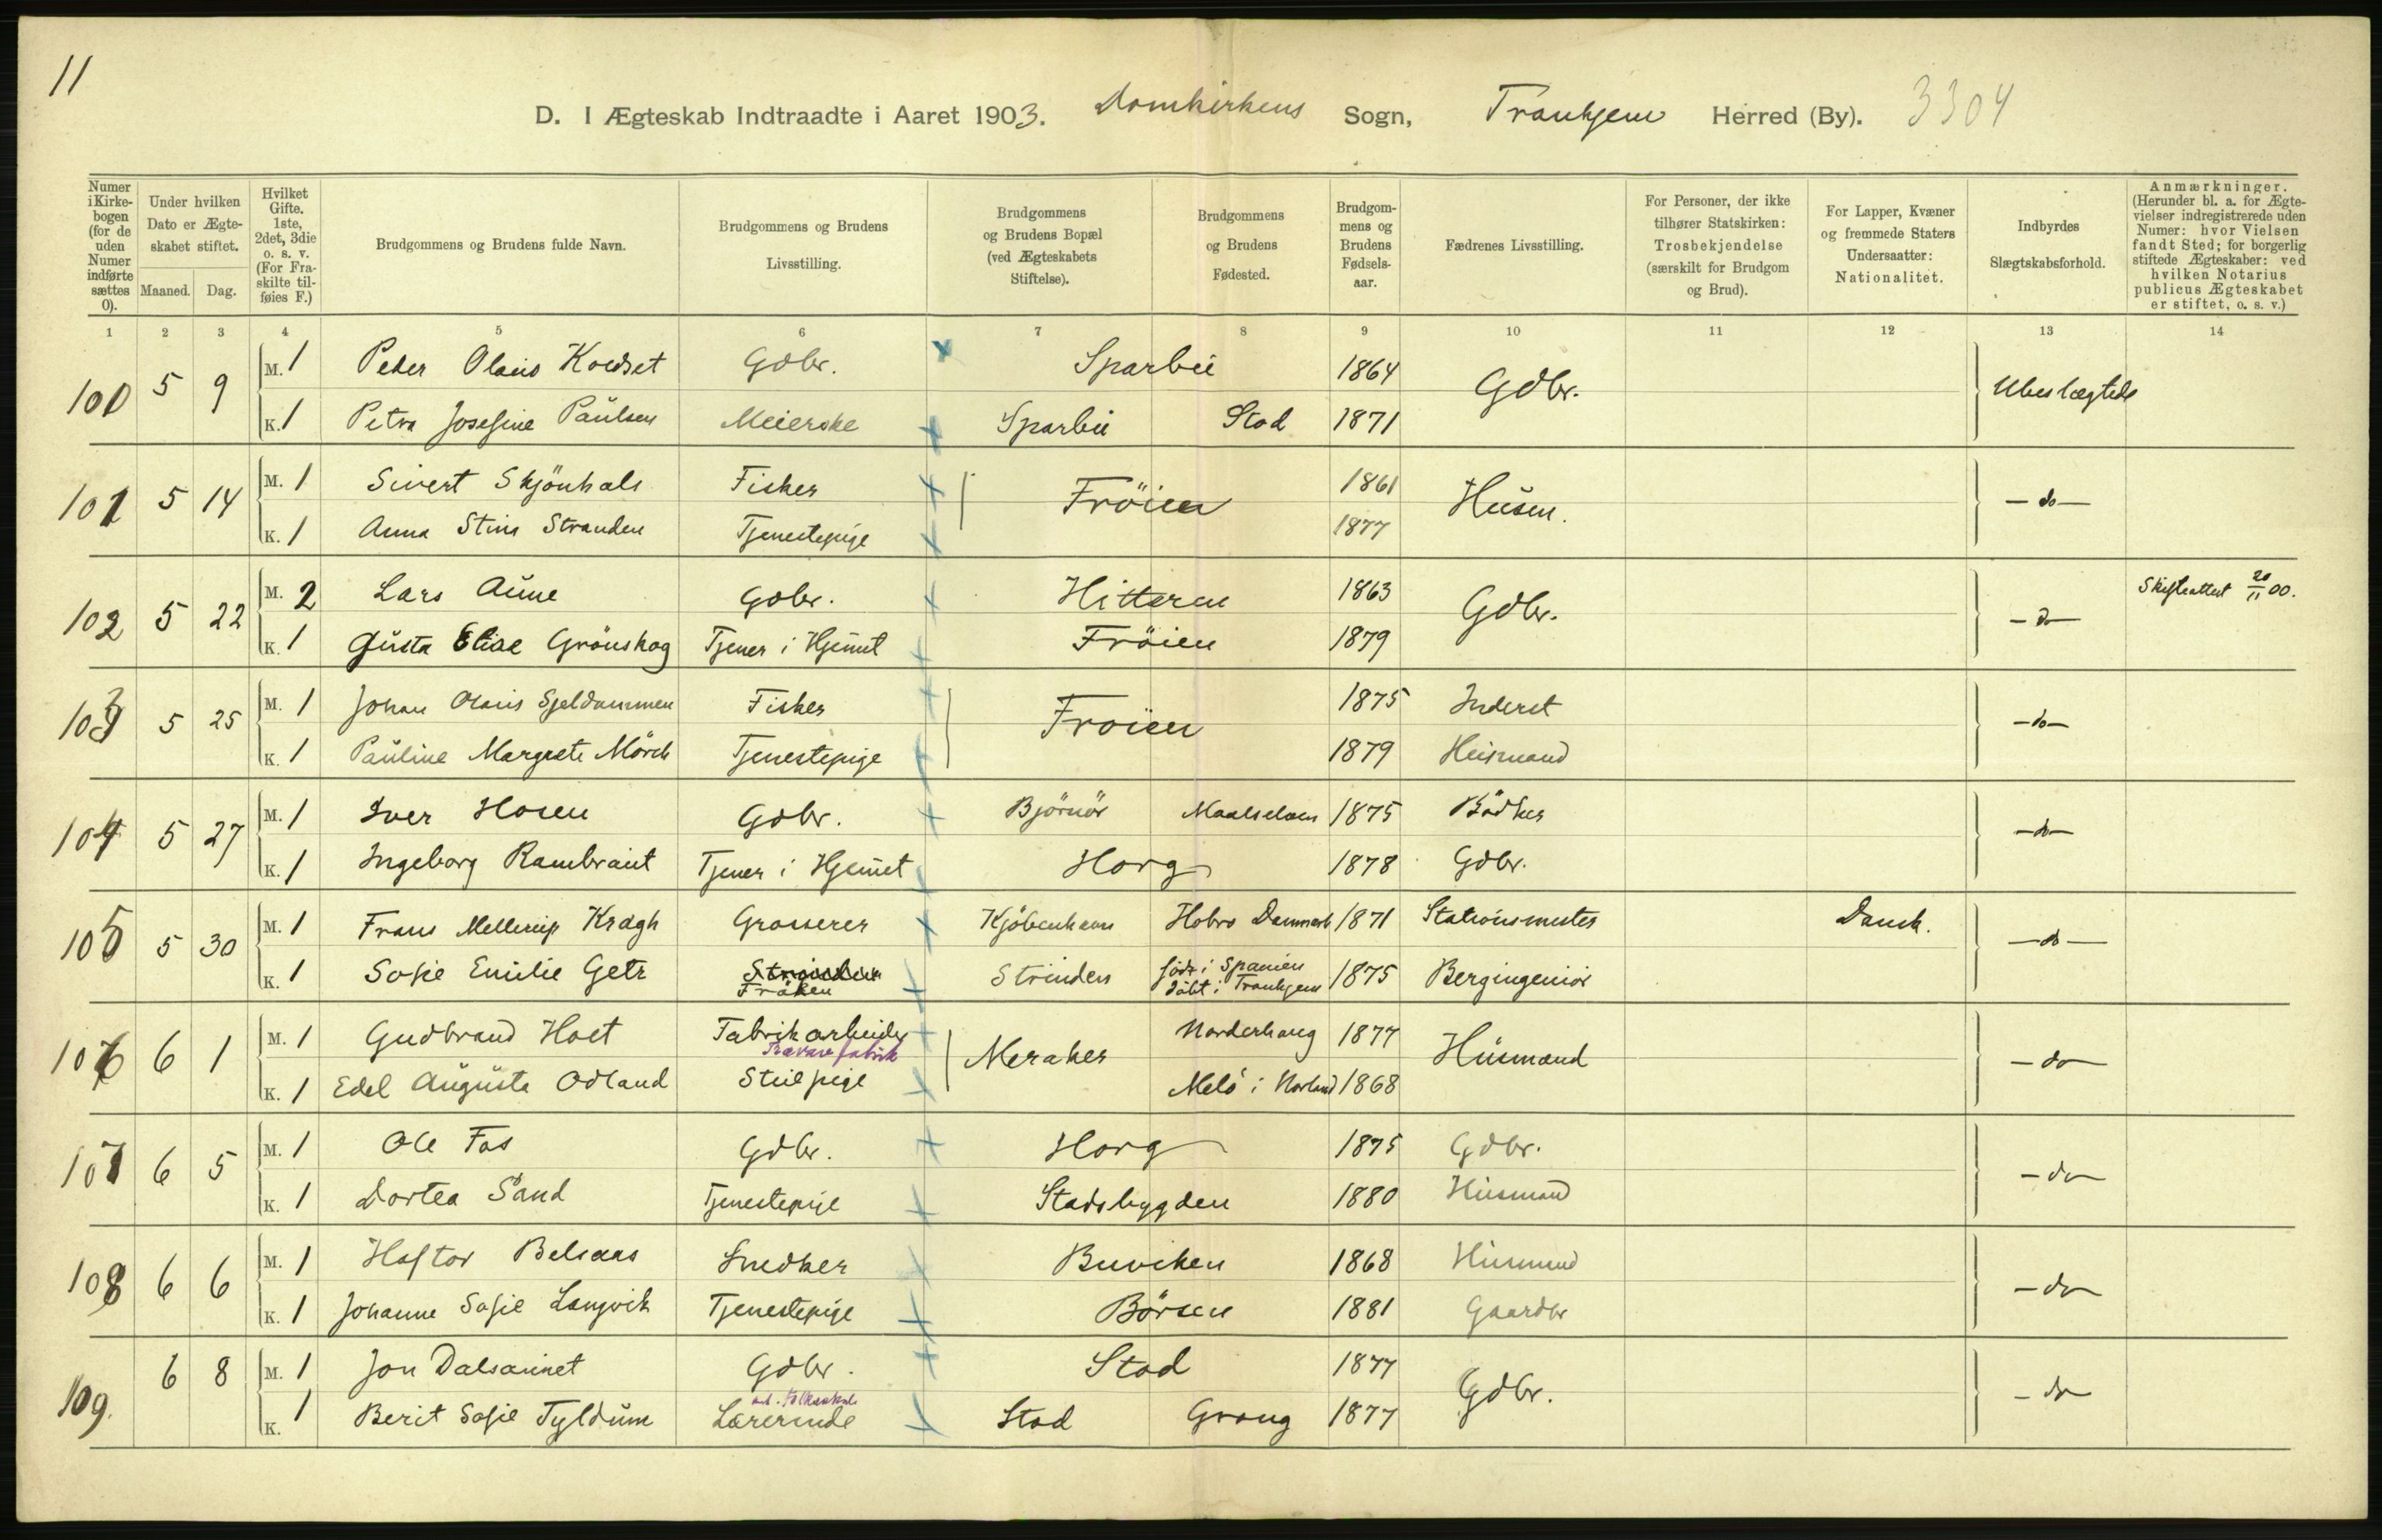 11
D. I Ægteskab Indtraadte i Aaret 1903. Domkirkens Sogn, Tronhjem Herred (By). 3304
Numer i Kirke-bogen (for de uden Numer indførte sættes 0). | Under hvilken Dato er Ægte-skabet stiftet. Maaned. Dag. | Hvilket Gifte. 1ste, 2det, 3die o. s. v. (For Fra-skilte til-føies F.) | Brudgommens og Brudens fulde Navn. | Brudgommens og Brudens Livsstilling. | Brudgommens og Brudens Bopæl (ved Ægteskabets Stiftelse). | Brudgommens og Brudens Fødested. | Brudgom-mens og Brudens Fødsels-aar. | Fædrenes Livsstilling. | For Personer, der ikke tilhører Statskirken: Trosbekjendelse (særskilt for Brudgom og Brud). | For Lapper, Kvæner og fremmede Staters Undersaatter: Nationalitet. | Indbyrdes Slægtskabsforhold. | Anmærkninger. (Herunder bl. a. for Ægte-vielser indregistrerede uden Numer: hvor Vielsen fandt Sted; for borgerlig stiftede Ægteskaber: ved hvilken Notarius publicus Ægteskabet er stiftet, o. s. v.)
1 2 3 4 5 6 7 8 9 10 11 12 13 14
100 5 9 M. 1 Peder Olaus Koedset Gdbr. Sparbu 1864 Gdbr. Ubeslægtede
K. 1 Petra Josefine Paulsen Meierske Sparbu Stod 1871
101 5 14 M. 1 Sivert Skjönhals Fisker Fröien 1861 Husm. —do—
K. 1 Anna Stine Stranden Tjenestepige 1877
102 5 22 M. 2 Lars Aune Gdbr. Hitteren 1863 Gdbr. —do— Skifteattest 20/11 00.
K. 1 Gusta Elise Grönskag Tjener i Hjemmet Fröien 1879
103 5 25 M. 1 Johan Olaus Sjeldammen Fisker Fröien 1875 Inderst —do—
K. 1 Pauline Margrete Mörch Tjenestepige 1879 Husmand
104 5 27 M. 1 Iver Hosen Gdbr. Björnör Maalselven 1875 Bödker —do—
K. 1 Ingeborg Rambraut Tjener i Hjemmet Horg 1878 Gdbr.
105 5 30 M. 1 Frans Mellerup Kragh Grosserer Kjöbenhavn Hobro Danmark 1871 Stationsmester Dansk. —do—
K. 1 Sofie Emilie Getz Strinden Fröken Strinden födt i Spanien döbt i Tronhjem 1875 Bergingeniör
106 6 1 M. 1 Gudbrand Hoet Fabrikarbeider Trævarefabrik Meraker Norderhaug 1877 Husmand —do—
K. 1 Edel Augusta Odland Stuepige Melö i Norland 1868
107 6 5 M. 1 Ole Fos Gdbr. Horg 1875 Gdbr. —do—
K. 1 Dortea Sand Tjenestepige Stadsbygden 1880 Husmand
108 6 6 M. 1 Haftor Belsaas Snedker Buviken 1868 Husmand —do—
K. 1 Johanne Sofie Langvik Tjenestepige Börsen 1881 Gaardbr
109. 6 8 M. 1 Jon Dalsaunet Gdbr. Stod 1877 Gdbr. —do—
K. 1 Berit Sofie Tyldum Lærerinde Stod Grong 1877